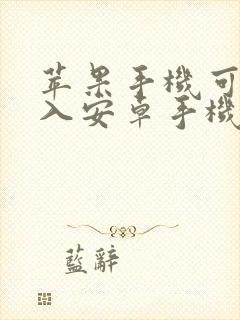 苹果手機可
入安卓手機
藍辭